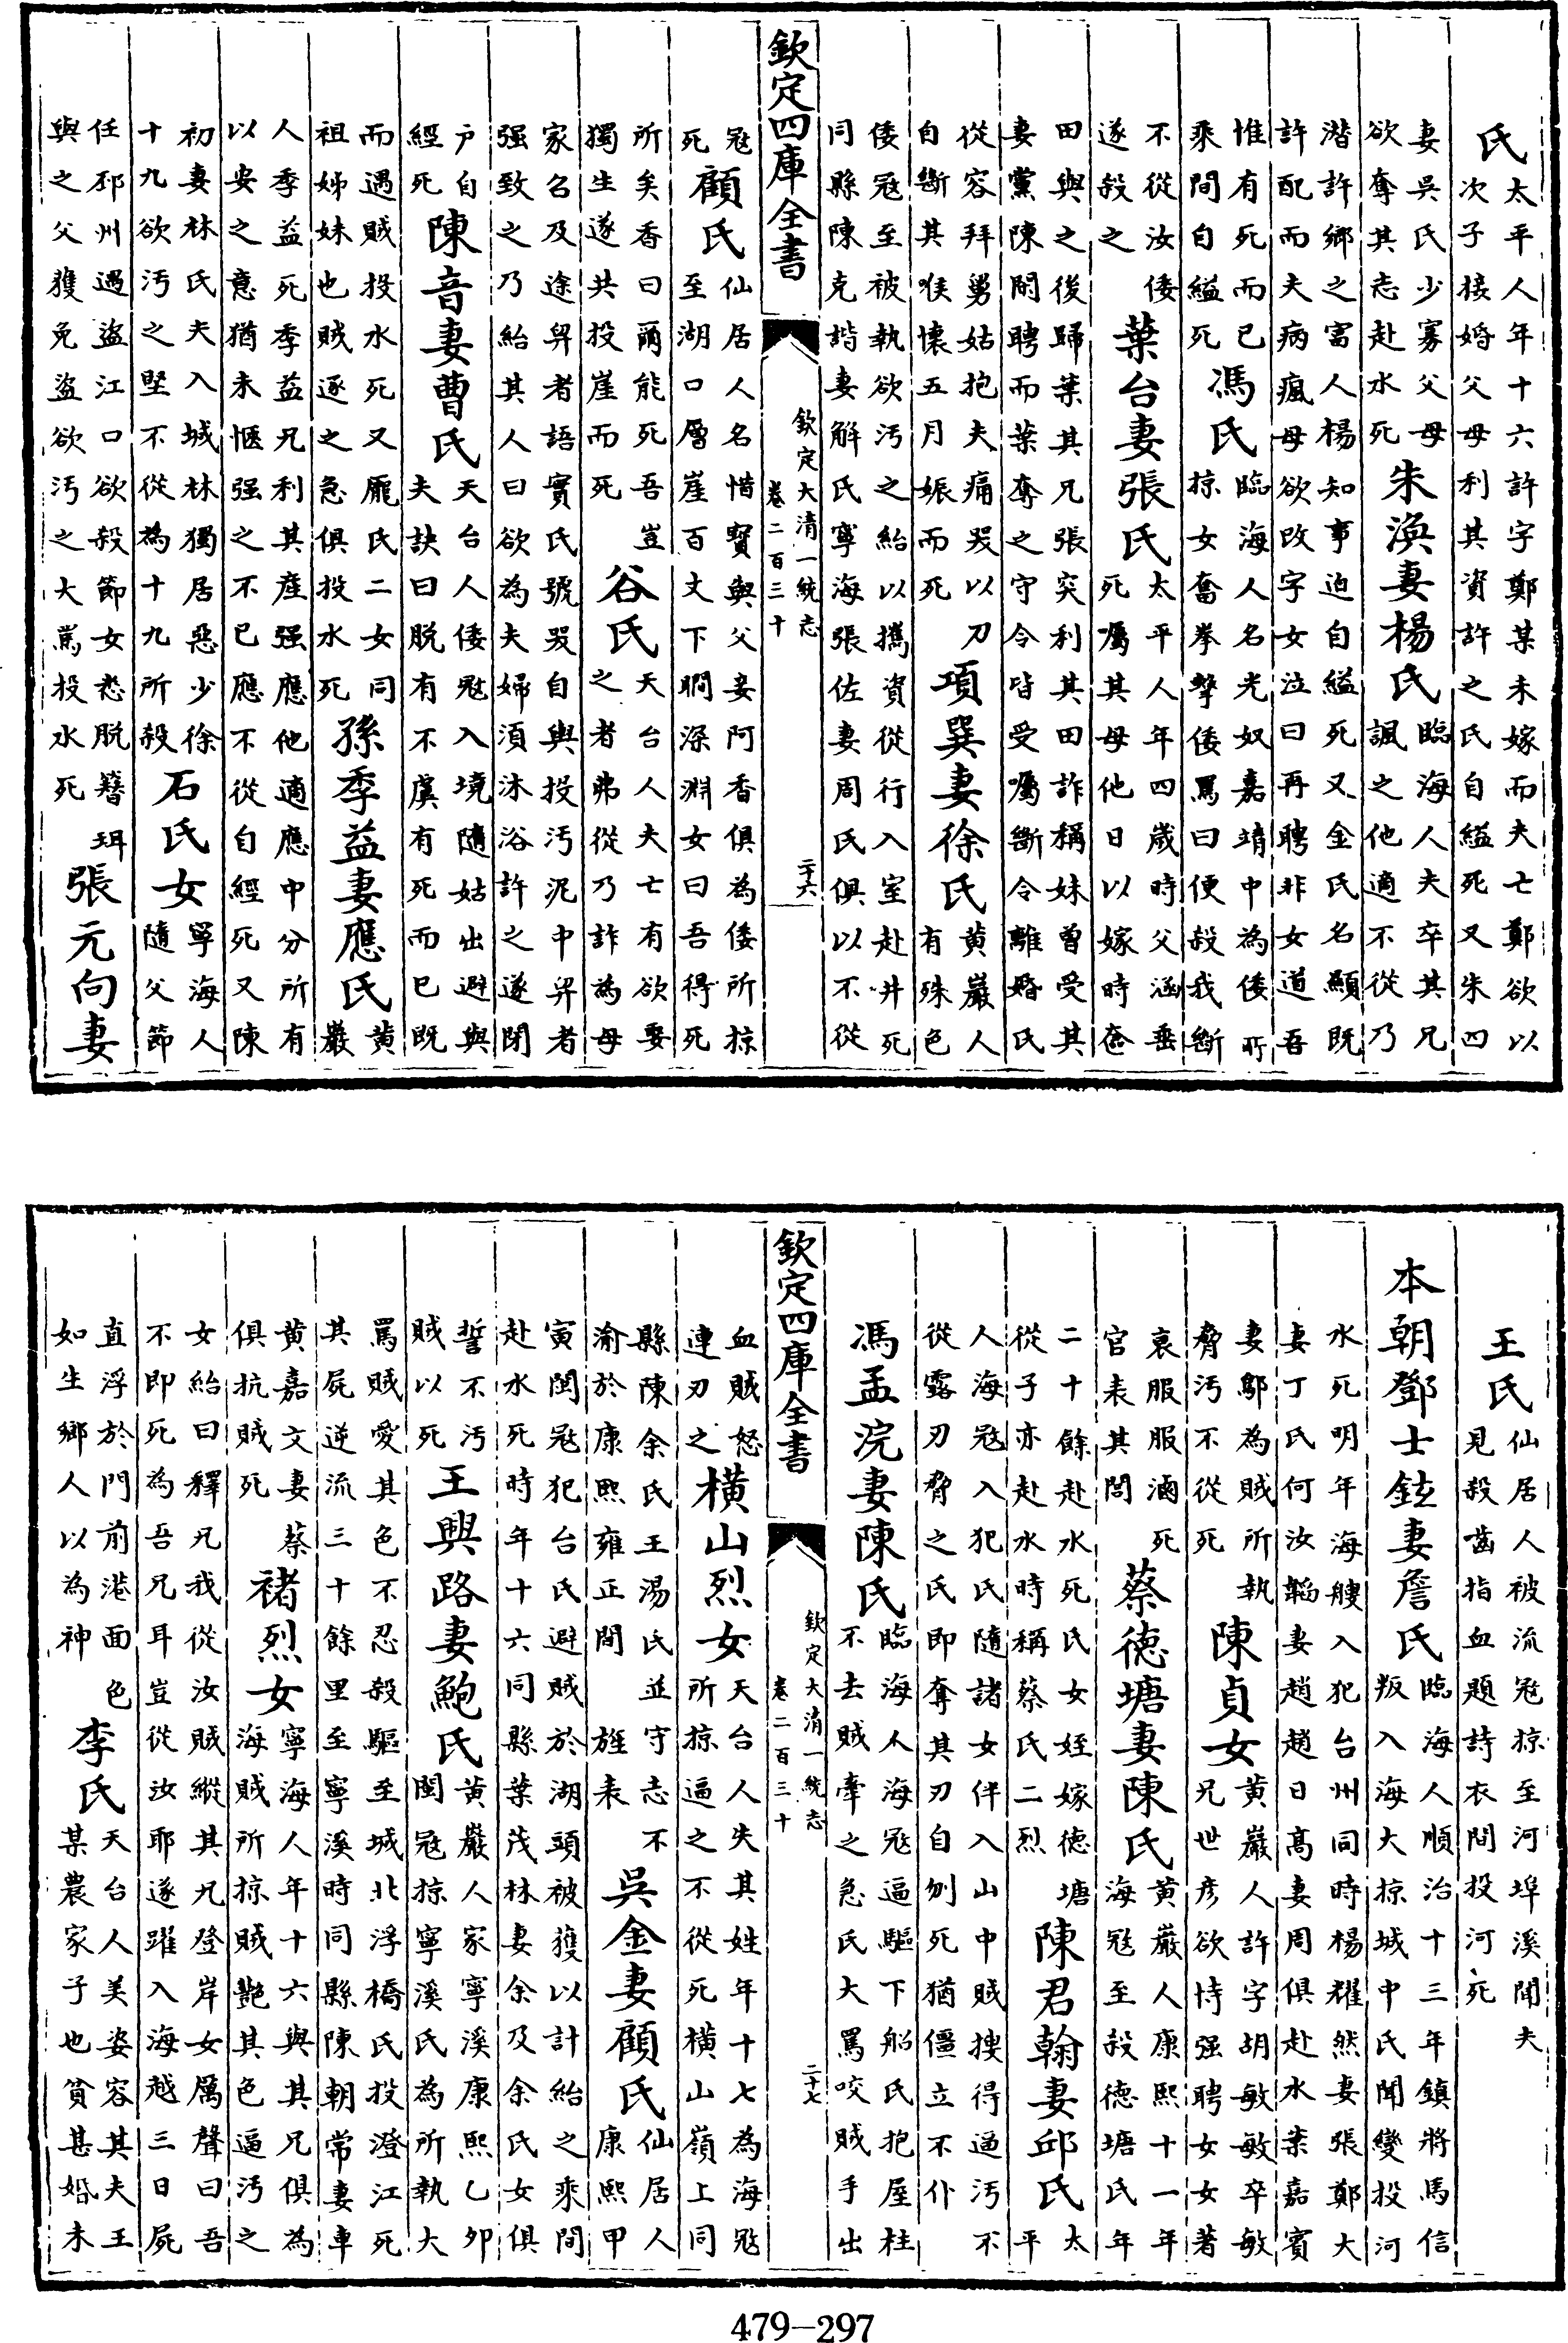 氏太平人年十六許字鄭某未嫁而夫亡鄭欲以
次子接婚父母利其資許之氏自縊死又朱四
妻吳氏少寡父母
欲奪其志赴水死
朱渙妻楊氏臨海人夫卒其兄
諷之他適不從乃
潛許鄉之富人楊知事迫自縊死又金氏名顯既
許配而夫病瘋母欲改字女泣曰再聘非女道吾
惟有死而已
乘間自縊死
馮氏臨海人名光奴嘉靖中為倭所
掠女奮拳擊倭罵曰便殺我斷
不從汝倭
遂殺之
葉台妻張氏太平人年四歲時父涵垂
死囑其母他日以嫁時奩
田與之後歸葉其兄張突利其田詐稱妹曾受其
妻黨陳閏聘而葉奪之守令皆受囑斷令離婚氏
從容拜舅姑抱夫痛哭以刀
自斷其喉懷五月娠而死
項巽妻徐氏黄巖人
有殊色
倭冦至被執欲汚之紿以攜資從行入室赴井死
同縣陳克諧妻解氏寧海張佐妻周氏俱以不從
欽定四庫全書
欽定大清一統志
卷二百三十
二十六
冦
死
顧氏仙居人名惜賢與父妾阿香俱為倭所掠
至湖口層崖百丈下瞷深淵女曰吾得死
所矣香曰爾能死吾豈
獨生遂共投崖而死
谷氏天台人夫亡有欲娶
之者弗從乃詐為母
家召及途舁者語實氏號哭自輿投汚泥中舁者
强致之乃紿其人曰欲為夫婦須沐浴許之遂閉
户自
經死
陳音妻曹氏天台人倭冦入境隨姑出避與
夫訣曰脫有不虞有死而已既
而遇賊投水死又龎氏二女同
祖姊妹也賊逐之急俱投水死
孫季益妻應氏黄
巖
人季益死季益兄利其産强應他適應中分所有
以安之意猶未愜强之不已應不從自經死又陳
初妻林氏夫入城林獨居惡少徐
十九欲汚之堅不從為十九所殺
石氏女寧海人
隨父節
任邳州遇盜江口欲殺節女悉脫簪珥
與之父獲免盜欲汚之大罵投水死
張元向妻
王氏仙居人被流冦掠至河埠溪聞夫
見殺齒指血題詩衣間投河死
本朝鄧士鉉妻詹氏臨海人順治十三年鎮將馬信
叛入海大掠城中氏聞變投河
水死明年海艘入犯台州同時楊耀然妻張鄭大
妻丁氏何汝韜妻趙趙日高妻周俱赴水葉嘉賓
妻鄔為賊所執
脅汚不從死
陳貞女黄巖人許字胡敏敏卒敏
兄世彦欲恃强聘女女著
哀服服滷死
官表其閭
蔡德塘妻陳氏黄巖人康熙十一年
海冦至殺德塘氏年
二十餘赴水死氏女姪嫁德塘
從子亦赴水時稱蔡氏二烈
陳君翰妻邱氏太
平
人海冦入犯氏隨諸女伴入山中賊搜得逼汚不
從露刃脅之氏即奪其刃自刎死猶僵立不仆
馮孟浣妻陳氏臨海人海冦逼驅下船氏抱屋柱
不去賊牽之急氏大罵咬賊手出
欽定四庫全書
欽定大清一統志
卷二百三十
二十七
血賊怒
連刃之
橫山烈女天台人失其姓年十七為海冦
所掠逼之不從死橫山嶺上同
縣陳余氏王湯氏並守志不
渝於康熙雍正間旌表
吳金妻顧氏仙居人
康熙甲
寅閩冦犯台氏避賊於湖頭被獲以計紿之乘間
赴水死時年十六同縣葉茂林妻余及余氏女俱
誓不汚
賊以死
王興路妻鮑氏黄巖人家寧溪康熙乙卯
閩冦掠寧溪氏為所執大
罵賊愛其色不忍殺驅至城北浮橋氏投澄江死
其屍逆流三十餘里至寧溪時同縣陳朝常妻車
黄嘉文妻蔡
俱抗賊死
褚烈女寧海人年十六與其兄俱為
海賊所掠賊艷其色逼汚之
女紿曰釋兄我從汝賊縱其兄登岸女厲聲曰吾
不即死為吾兄耳豈從汝耶遂躍入海越三日屍
直浮於門前港面色
如生鄉人以為神
李氏天台人美姿容其夫王
某農家子也貧甚婚未
479-297